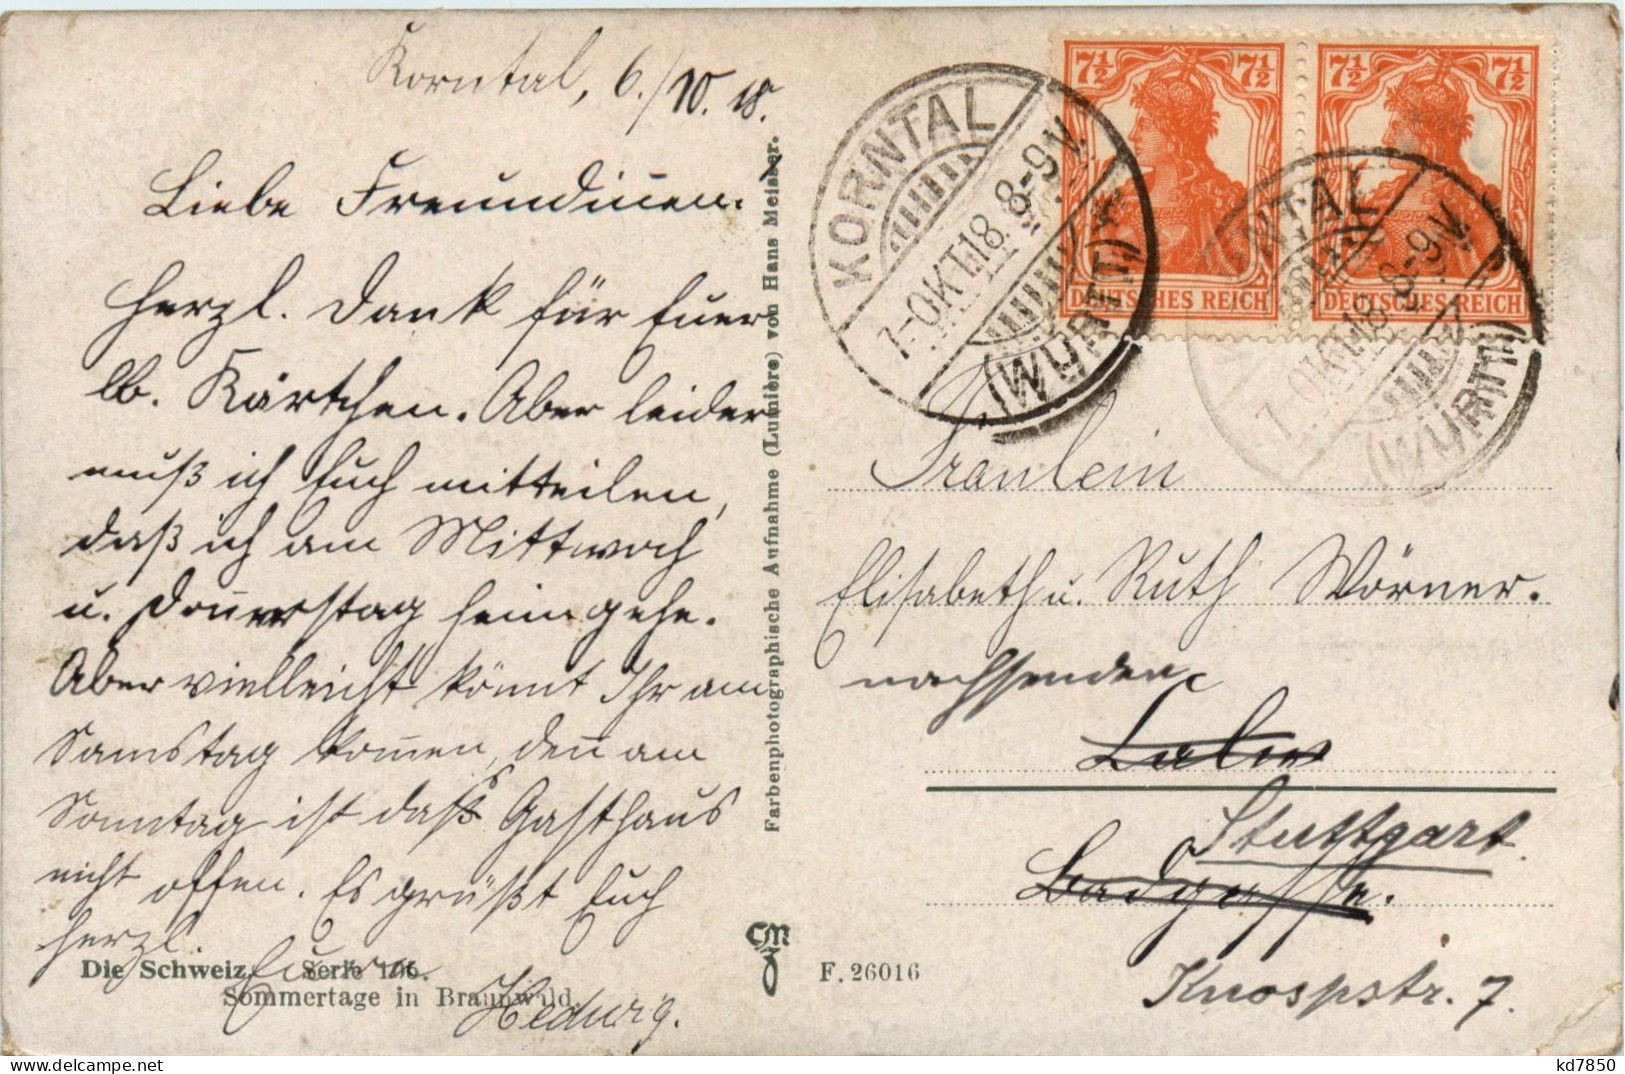 Korntal, 6./10. 18.
Liebe Freundinen.
Herzl. Dank für Euer
lb. Kärtchen. Aber leider
muß ich Euch mitteilen,
daß ich am Mittwoch
u. Donnerstag heimgehe.
Aber vielleicht könnt Ihr am
Samstag kom̅en, den̅ am
Sonntag ist das Gasthaus
nicht offen. Es grüßt Euch
herzl. Eure
Hedwig.
Die Schweiz Serie 106.
Sommertage in Braunwald.
Farbenphotographische Aufnahme (Lumière) von Hans Meisser.
7½ 7½
DEUTSCHES REICH DEUTSCHES REICH
KORNTAL
7-OKT.18. 8-9V.
(WÜRTT)
NTAL
7-OKT.18. 8-9V.
(WÜRTT)
Fräulein
Elisabeth u. Ruth Wörner.
nachsenden
Calw
Stuttgart.
Badgasse.
Knospstr. 7.
CM
F. 26016
kd7850